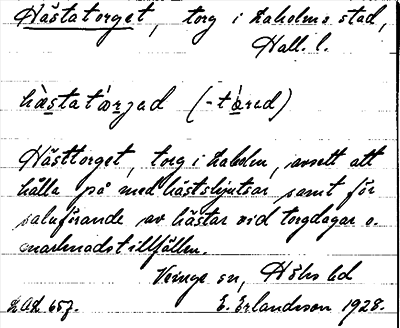 Hästatorget, torg i Laholms stad,
Hall. l.
hästatårjad (-tåred)
Hästtorget, torg i Laholm, avsett att
hålla på med hästskjutsar samt för
saluförande av hästar vid torgdagar o.
marknadstillfällen.
Veinge sn, Höks hd
LAL 657. E. Erlandsson 1928.